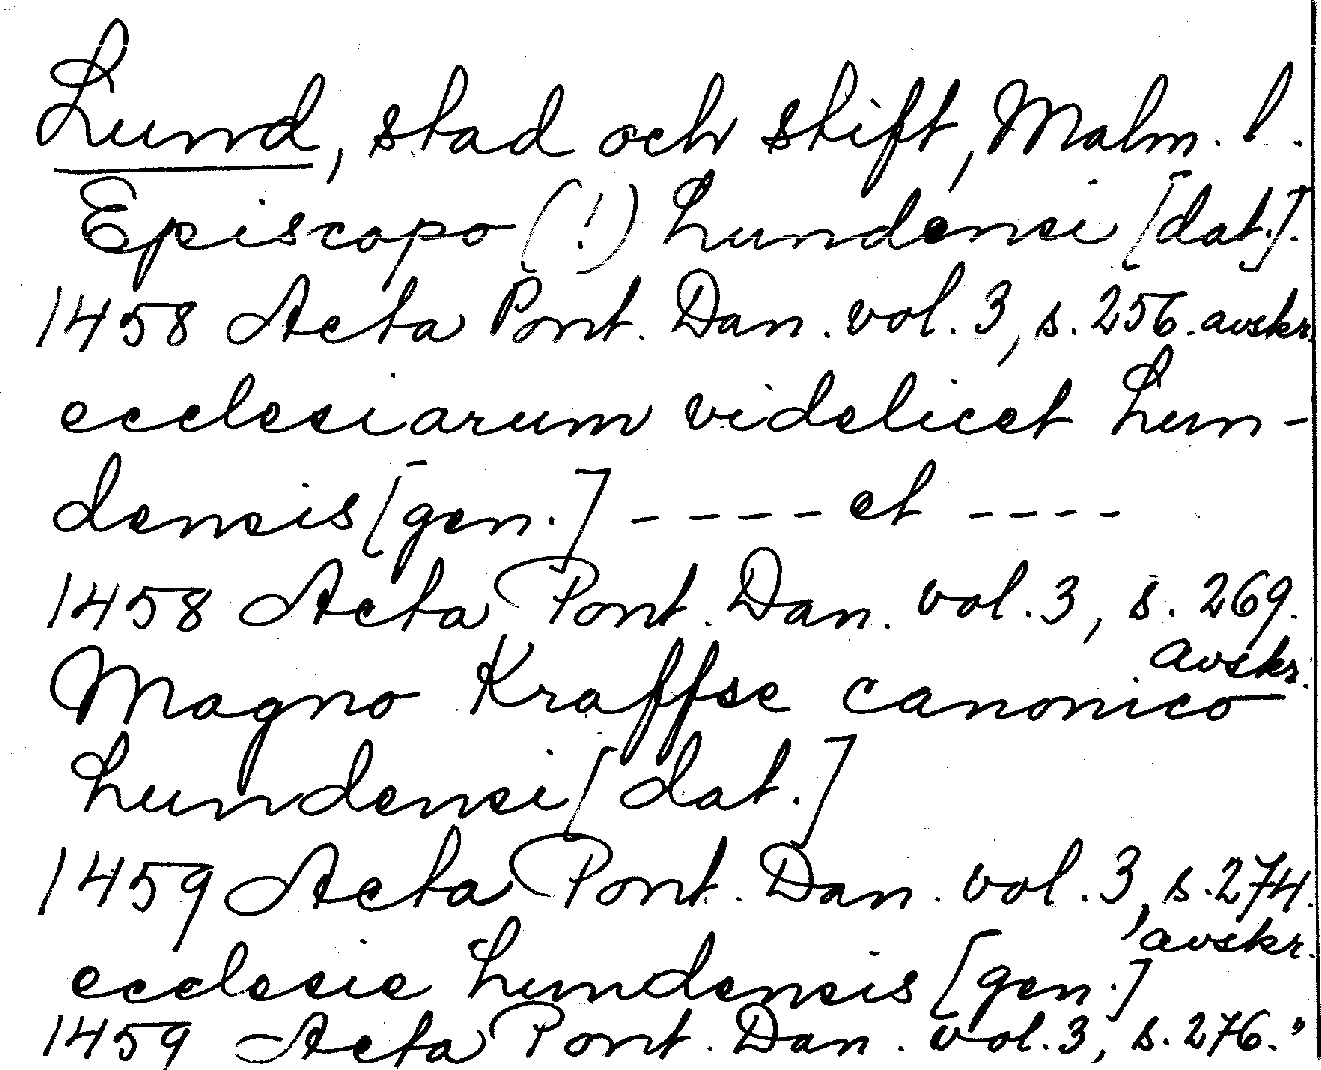 Lund, stad och stift, Malm. l.
Episcopo (!) Lundensi [dat.].
1458 Acta Pont. Dan. vol. 3, s. 256. avskr.
ecclesiarum videlicet Lun-
densis [gen.] ---- et ----
1458 Acta Pont. Dan. vol. 3, s. 269.
avskr.
Magno Kraffse canonico
Lundensi [dat.]
1459 Acta Pont. Dan. vol. 3, s. 274.
avskr.
ecclesie Lundensis [gen.]
1459 Acta Pont. Dan. vol. 3, s. 276. "